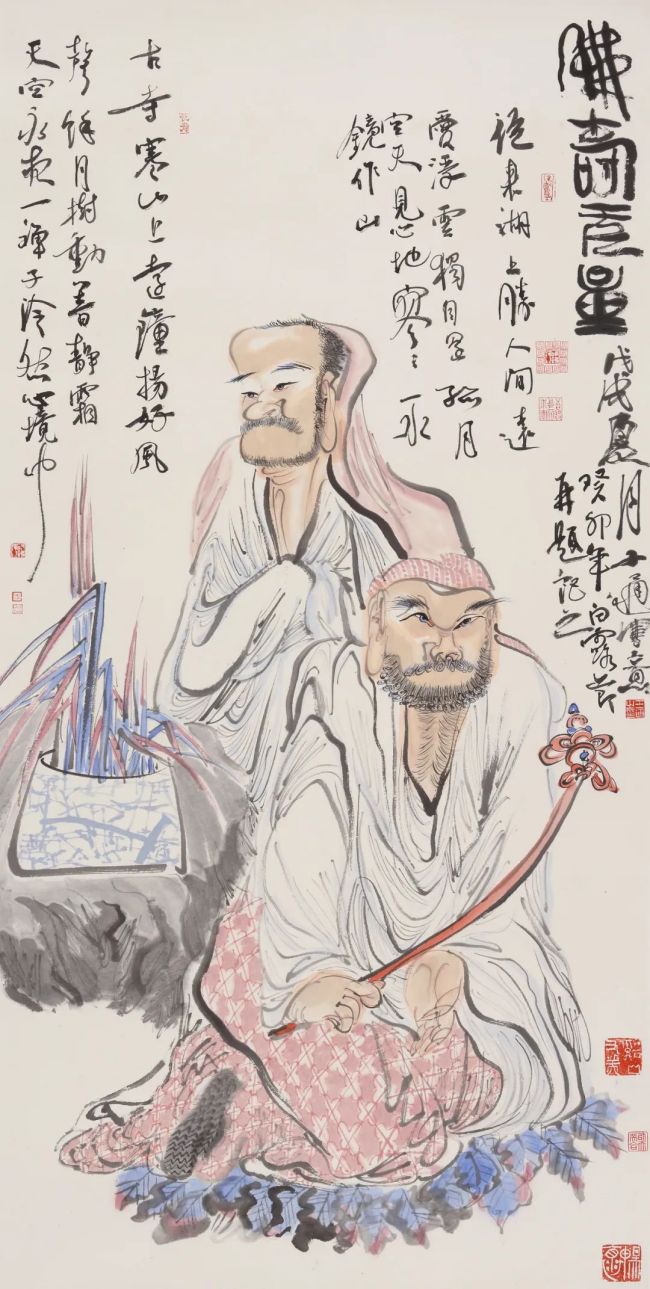 佛壽无量
戊戌夏月十通寫意
癸卯年白露节
再題記之
從来湖上勝人間遠
愛浮雲獨自還孤月
空天見心地寥々一水
鏡作山
古寺寒山上遠鐘揚好風
聲餘月樹動響静霜
天空永夜一禪子泠然心境中